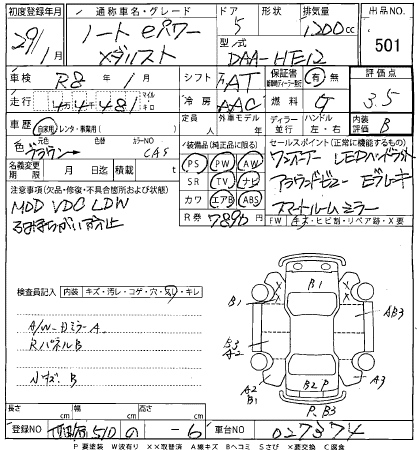 初度登録年月 通称車名・グレード ドア 形状 排気量 出品NO.
29/1 ノート eパワー 5 1200cc 501
メダリスト 型式 DAA-HE12
車検 R8年1月 シフト FAT 保証書 有・無 評価点 3.5
走行 44481 マイル キロ 冷房 AAC 燃料 G
車歴 自家用・レンタ・事業用( ) 定員 人 外車モデル 年 ディーラー 並行 ハンドル 左・右 内装評価 B
色 元色 ブラウン 色替 カラーNO CAS
装備品(純正品に限る) セールスポイント(正常に機能するもの)
名義変更期限 月 日迄 積載 t
PS PW AW ワンオーナー LEDヘッドライト
SR TV ナビ アラウンドビュー Eブレーキ
カワ エアB ABS スマートルームミラー
R券 7890円
FW キズ・ヒビ割・リペア跡・X要
注意事項(欠品・修復・不具合箇所および状態)
MOD VDC LDW
ふみまちがい防止
検査員記入 内装 キズ・汚レ・コゲ・穴・スレ・キレ
A/W・Dミラー A
Rパネル B
小キズ. B
B1 B1 AB3
B3 A2
A2 B1 B2 P A3
P. B3
長さ cm 幅 cm 高さ cm
登録NO 510 の -6 車台NO 027374
P 要塗装 W 波有り ××取替済 A 線キズ B ヘコミ S さび ×要交換 C 腐食